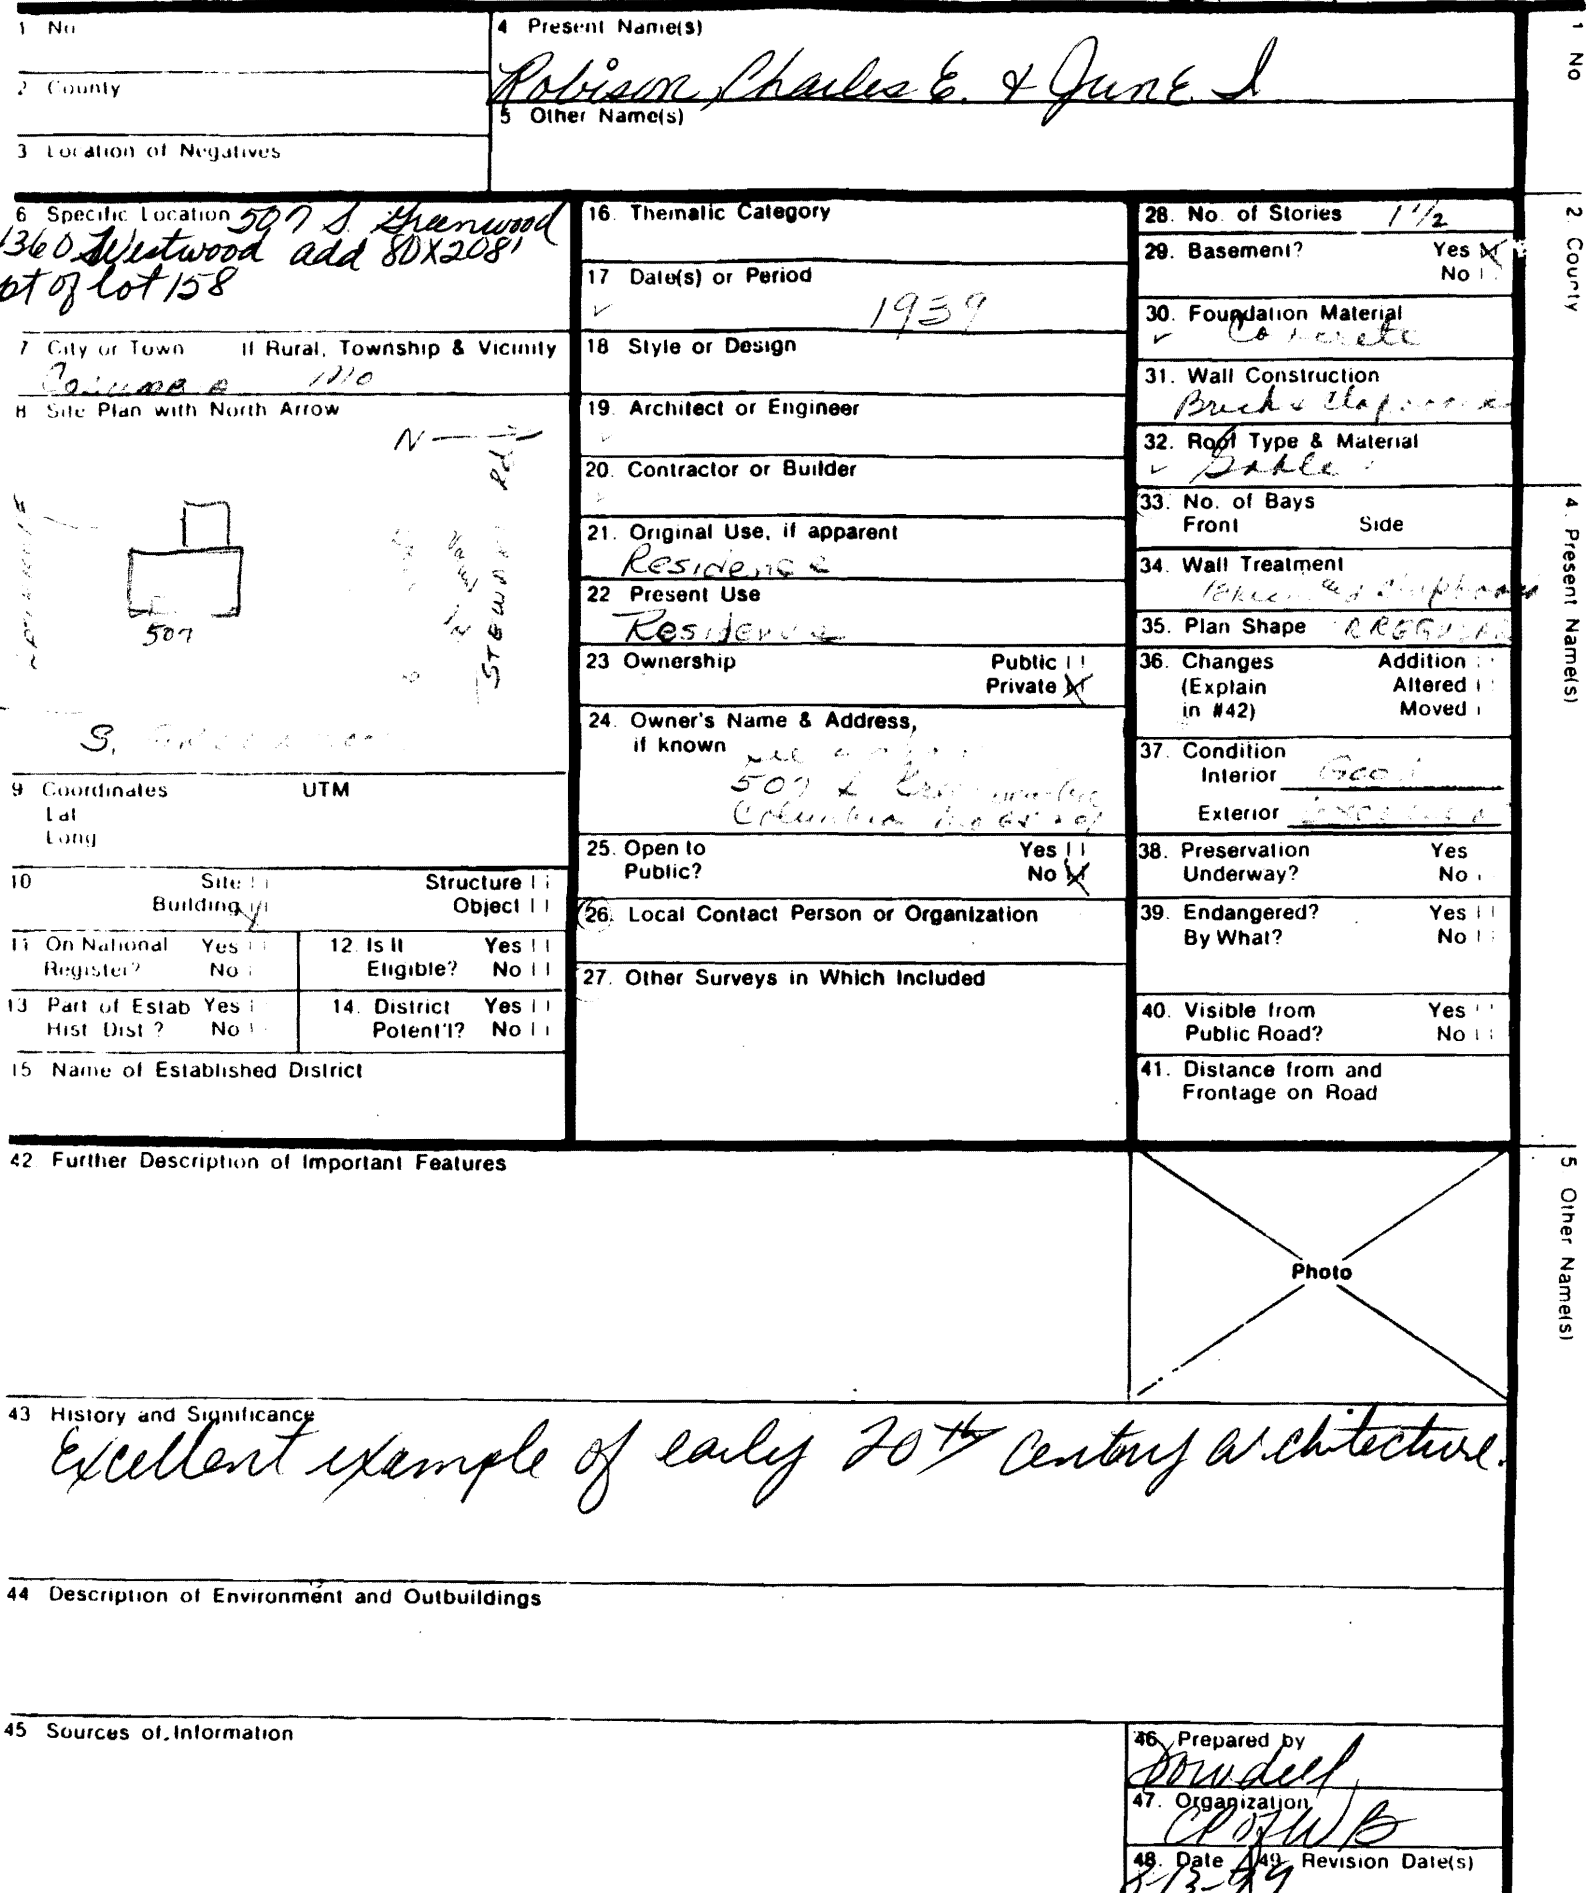 1 No
4 Present Name(s)
Robison, Charles E. & June I
2 County
5 Other Name(s)
3 Location of Negatives
6 Specific Location 507 S. Greenwood
1360 Westwood add 80X208'
pt of lot 158
7 City or Town If Rural, Township & Vicinity
Columbia Mo
8 Site Plan with North Arrow
N
Stewart Rd
507
S.
9 Coordinates UTM
Lat
Long
10 Site Structure
Building Object
11 On National Register? Yes No
12. Is It Eligible? Yes No
13 Part of Estab Hist Dist? Yes No
14. District Potent'l? Yes No
15 Name of Established District
16. Thematic Category
17 Date(s) or Period
1939
18 Style or Design
19. Architect or Engineer
20. Contractor or Builder
21. Original Use, if apparent
Residence
22 Present Use
Residence
23 Ownership Public
Private X
24. Owner's Name & Address,
if known
507 S
Columbia Mo
25. Open to Yes
Public? No X
26. Local Contact Person or Organization
27. Other Surveys in Which Included
28. No. of Stories 1 1/2
29. Basement? Yes X
No
30. Foundation Material
Concrete
31. Wall Construction
Brick & Clapboard
32. Roof Type & Material
Gable
33. No. of Bays
Front Side
34. Wall Treatment
35. Plan Shape
36. Changes Addition
(Explain Altered
in #42) Moved
37. Condition
Interior Good
Exterior
38. Preservation Yes
Underway? No
39. Endangered? Yes
By What? No
40. Visible from Yes
Public Road? No
41. Distance from and
Frontage on Road
42. Further Description of Important Features
Photo
43 History and Significance
Excellent example of early 20th century architecture.
44 Description of Environment and Outbuildings
45 Sources of Information
46. Prepared by
Dowdell
47. Organization
48. Date 49. Revision Date(s)
1 No
2. County
4. Present Name(s)
5 Other Name(s)